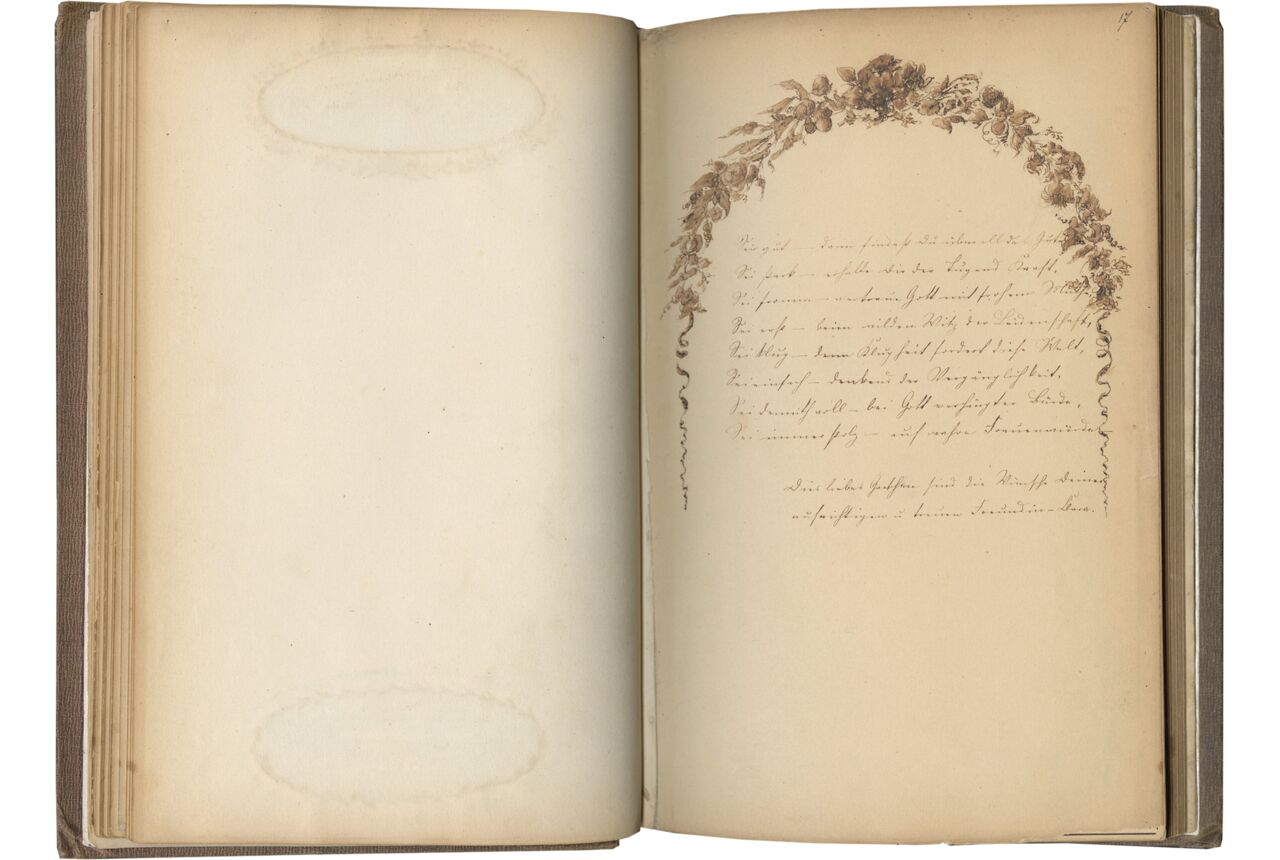 17
Sei gut – dann findest Du überall das Gute,
Sei stark – erhalte Dir der Tugend Kraft,
Sei fromm – vertraue Gott mit frohem Muthe,
Sei ernst – beim wilden Witz der Leidenschaft,
Sei klug – denn Klugheit fordert diese Welt,
Sei einfach – denkend der Vergänglichkeit,
Sei demuthvoll – bei Gott verhängter Bürde,
Sei immer stolz – auf wahre Frauenwürde.
Dies liebes Gretchen sind die Wünsche Deiner
aufrichtigen u treuen Freundin –